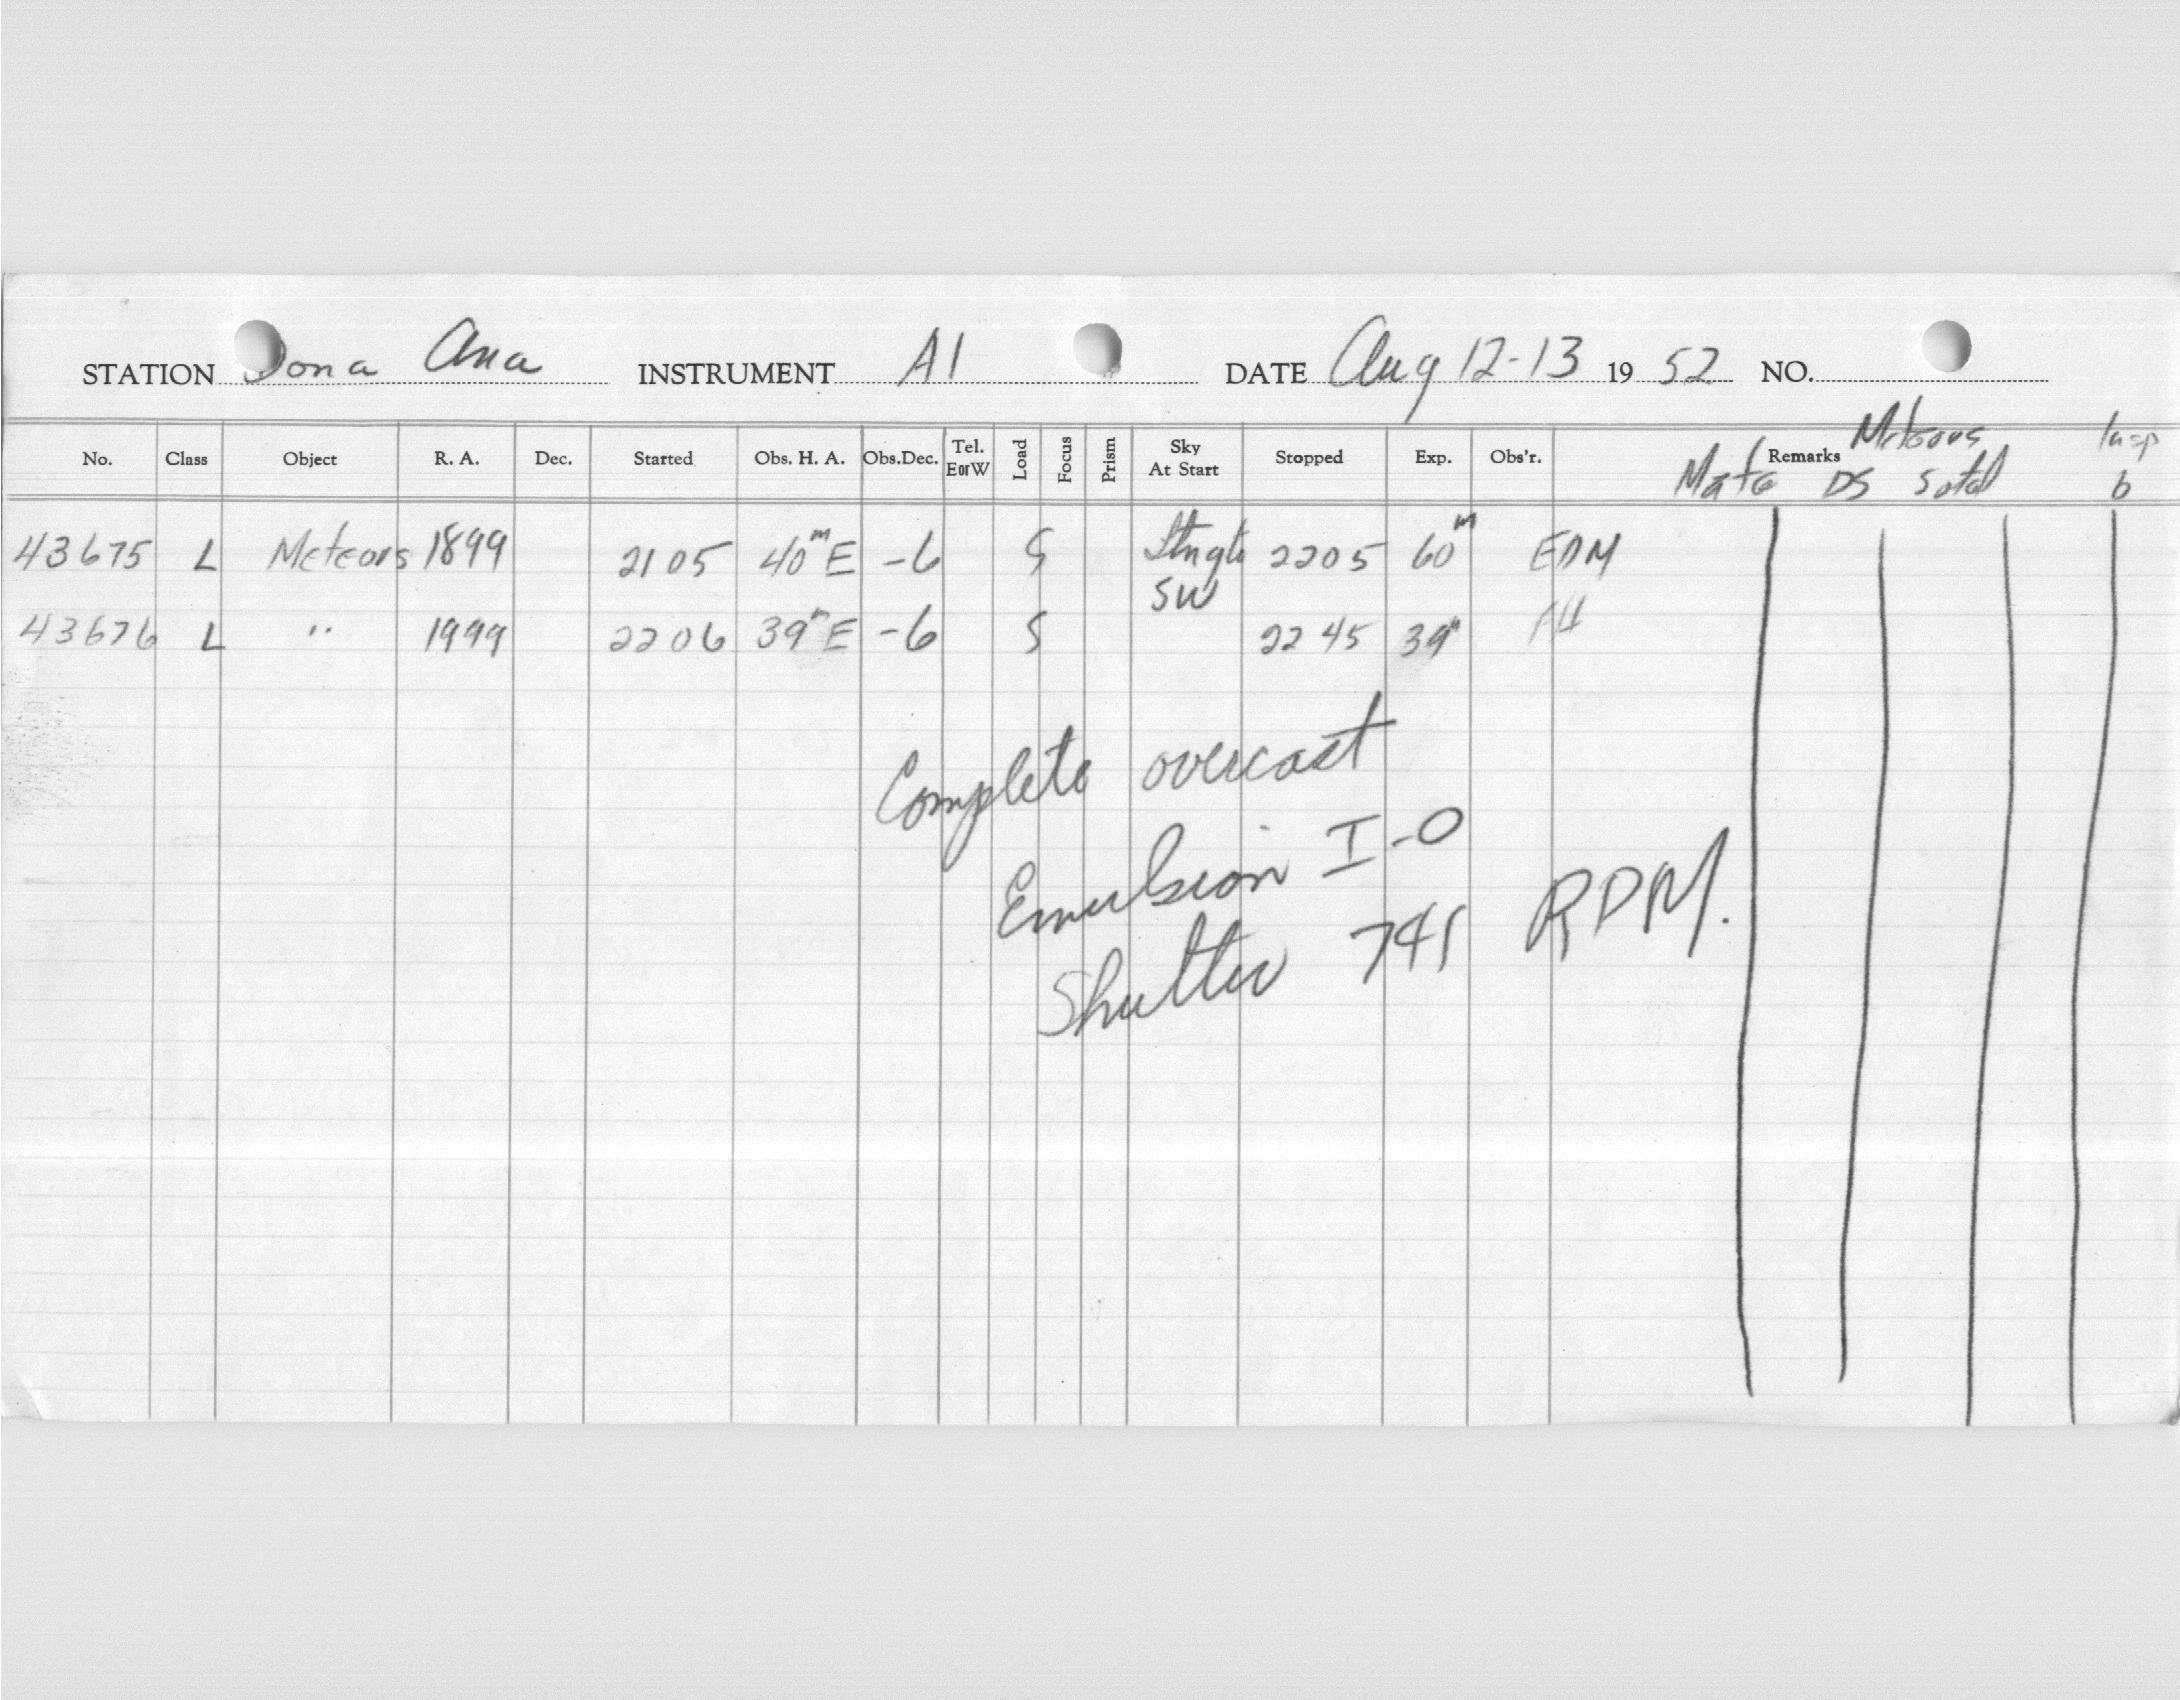 STATION Dona Ana INSTRUMENT A1 DATE Aug 12-13 19 52 NO.
No. Class Object R. A. Dec. Started Obs. H. A. Obs.Dec. Tel. E or W Load Focus Prism Sky At Start Stopped Exp. Obs'r. Remarks Meteors Insp
DS b
43675 L Meteors 1899 2105 40m E -6 S 2205 60m EDM
SW
43676 L " 1999 2206 39m E -6 S 2245 39m
Complete overcast
Emulsion I-O
Shutter 741 RDM.